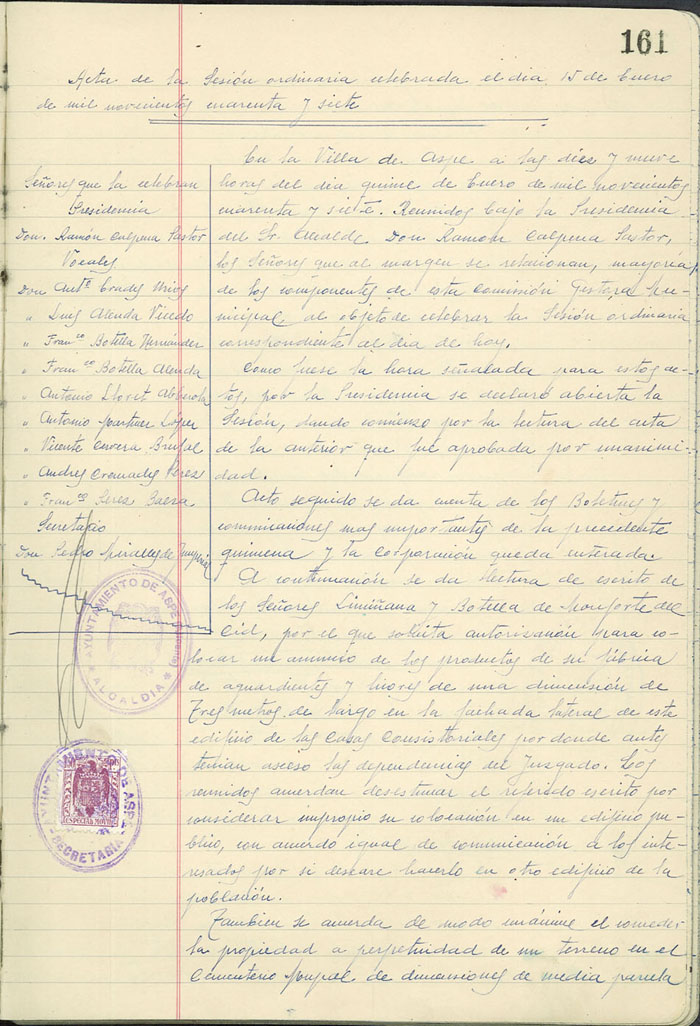 161
Acta de la Sesión ordinaria celebrada el dia 15 de Enero
de mil novecientos cuarenta y siete
Señores que la celebran
Presidencia
Don Ramón Calpena Pastor
Vocales
Don Antº
" Luis Alenda
" Franco Botella Hernández
" Franco Botella Alenda
" Antonio Llorit
" Antonio Martinez López
" Vicente Cervera
" Andres Cremades Perez
" Franco Perez Baeza
Secretario
Don Pedro
En la Villa de Aspe a las diez y nueve
horas del dia quince de Enero de mil novecientos
cuarenta y siete. Reunidos bajo la Presidencia
del Sr. Alcalde Don Ramon Calpena Pastor,
los Señores que al margen se relacionan, mayoría
de los componentes de esta Comisión Gestora Mu-
nicipal al objeto de celebrar la Sesión ordinaria
correspondiente al dia de hoy.
Como fuese la hora señalada para estos ac-
tos, por la Presidencia se declaró abierta la
Sesión, dando comienzo por la lectura del acta
de la anterior que fué aprobada por unanimi-
dad.
Acto seguido se da cuenta de los Boletines y
comunicaciones mas importantes de la precedente
quincena y la Corporación queda enterada.
A continuación se da lectura de escrito de
los Señores Limiñana y Botella de Monforte del
Cid, por el que solicita autorización para co-
locar un anuncio de los productos de su fábrica
de aguardientes y licores de una dimensión de
tres metros de largo en la fachada lateral de este
edificio de las Casas Consistoriales por donde antes
tenian acceso las dependencias del Juzgado. Los
reunidos acuerdan desestimar el referido escrito por
considerar impropio su colocación en un edificio pu-
blico, con acuerdo igual de comunicación a los inte-
resados por si deseare hacerlo en otro edificio de la
población.
Tambien se acuerda de modo unánime el conceder
la propiedad a perpetuidad de un terreno en el
Cementerio Mupal de dimensiones de media parcela
AYUNTAMIENTO DE ASPE
ALCALDIA
AYUNTAMIENTO DE ASPE
SECRETARIA
ESPECIAL MOVIL